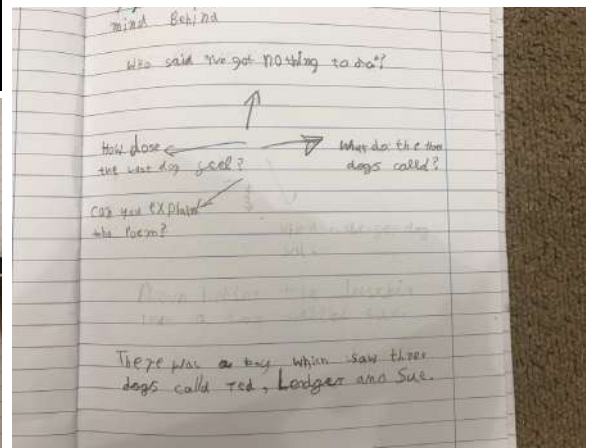 mind Behind
who said "I've got nothing to do"?
How dose
the last dog feel?
What do the three
dogs called?
can you explain
the Poem?
There was a boy which saw three
dogs calld Ted, Lendger and Sue.